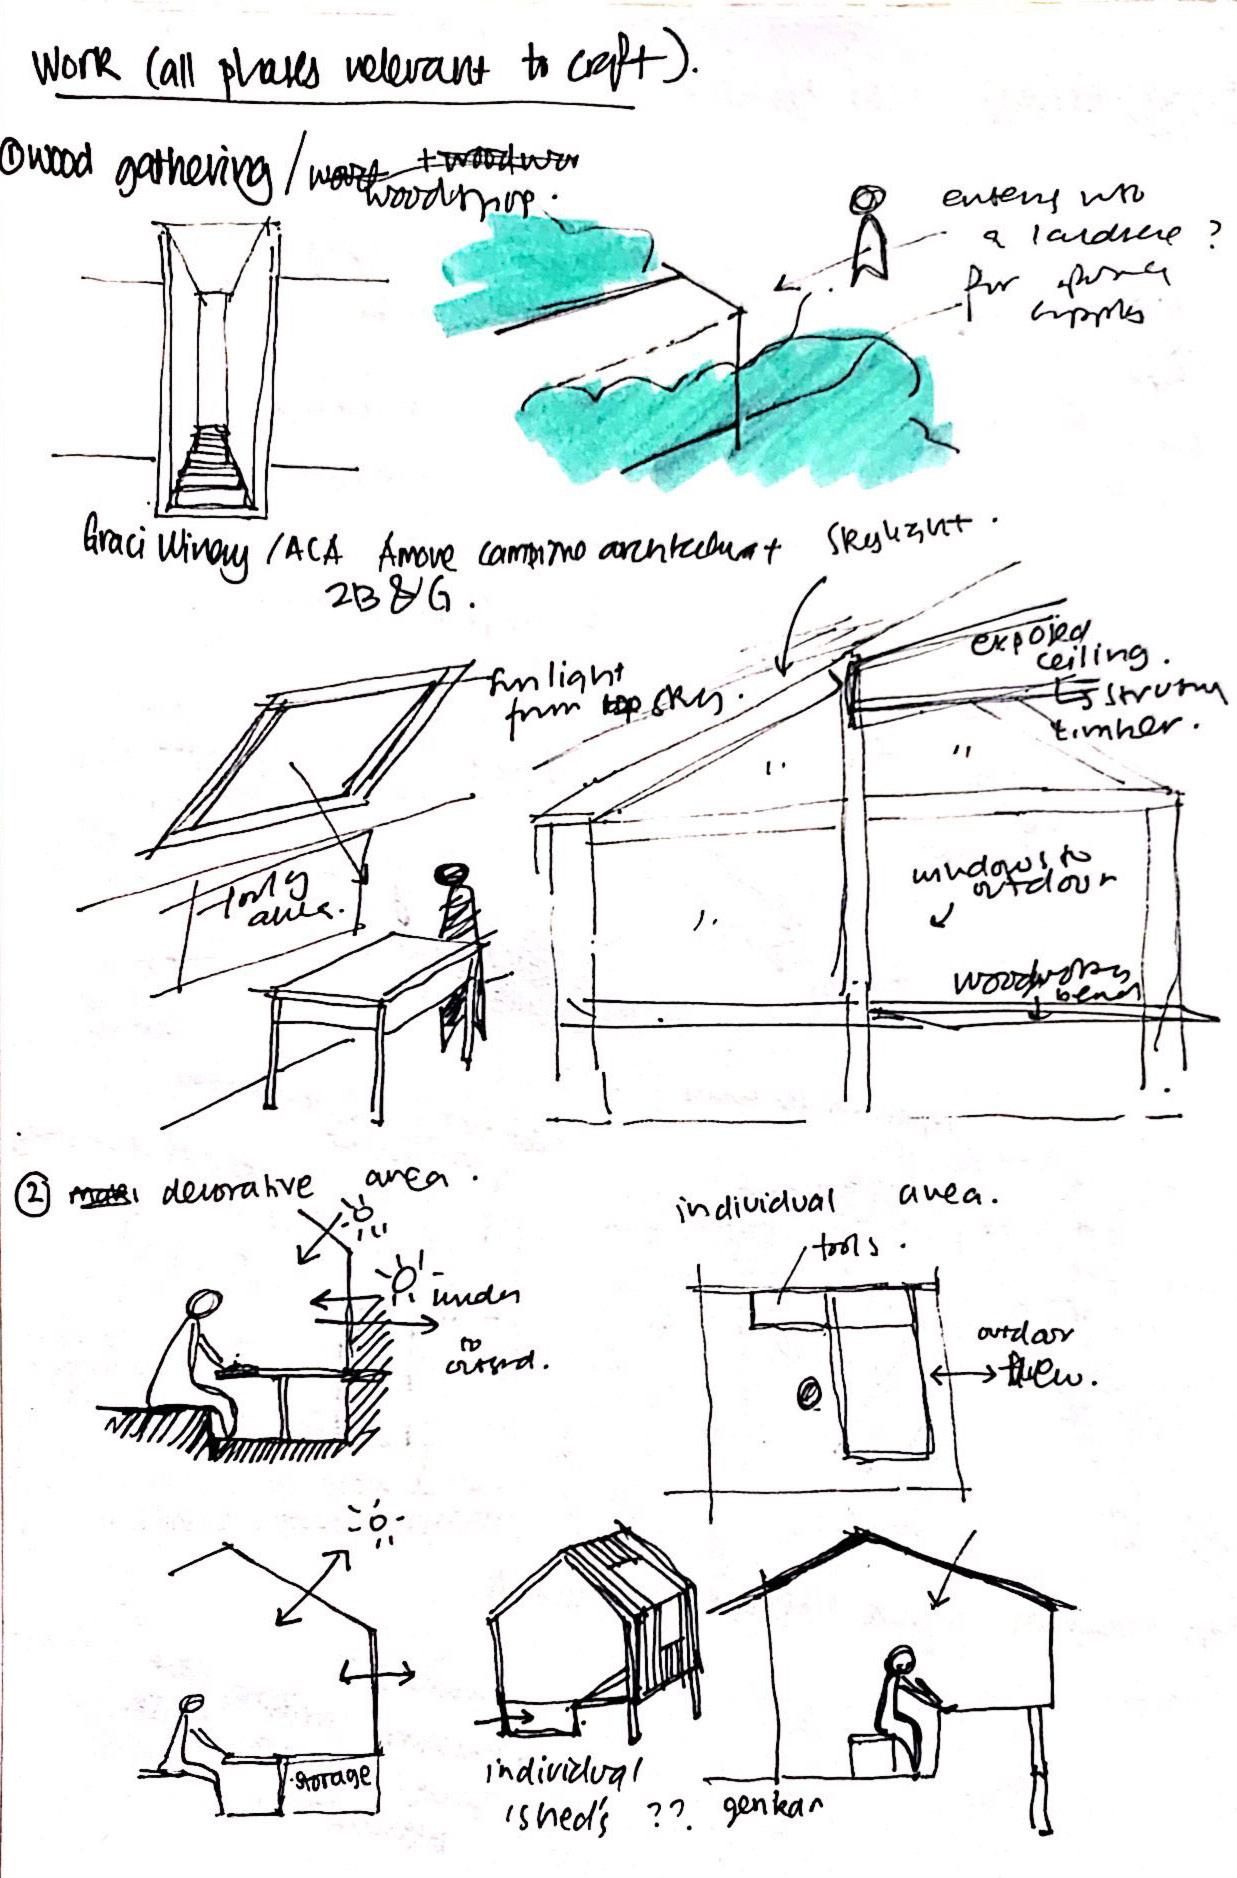 Work (all phases relevant to craft).
① wood gathering / woodshop.
enters into
a landscape ?
for
supplies
Graci Winery / ACA Amore campione architectura +
2B & G.
skylight.
sunlight
from top sky.
exposed
ceiling.
↳ structural
timber.
tool
area.
windows to
outdoor
woodworks
bench
② decorative area.
under
to
individual area.
tools.
outdoor
view.
storage
individual
'shed's ??.
genkan